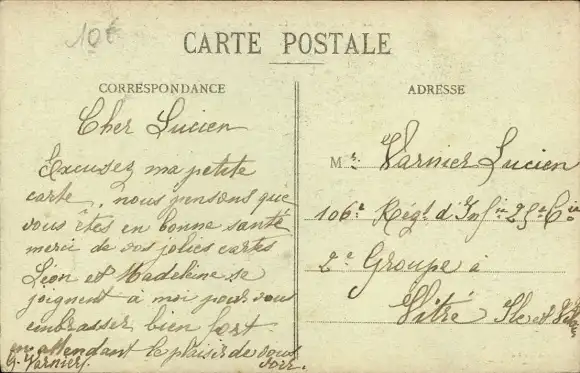 10€
CARTE POSTALE
CORRESPONDANCE
Cher Lucien
Excusez ma petite
carte, nous pensons que
vous êtes en bonne santé
merci de vos jolies cartes
Léon et Madeleine se
joignent à moi pour vous
embrasser bien fort.
en attendant le plaisir de vous
voir.
G. Varnier
ADRESSE
Mr. Varnier Lucien
106e Régt d'Infie 25e Cie
2e Groupe à
Vitré Ile et Vilaine